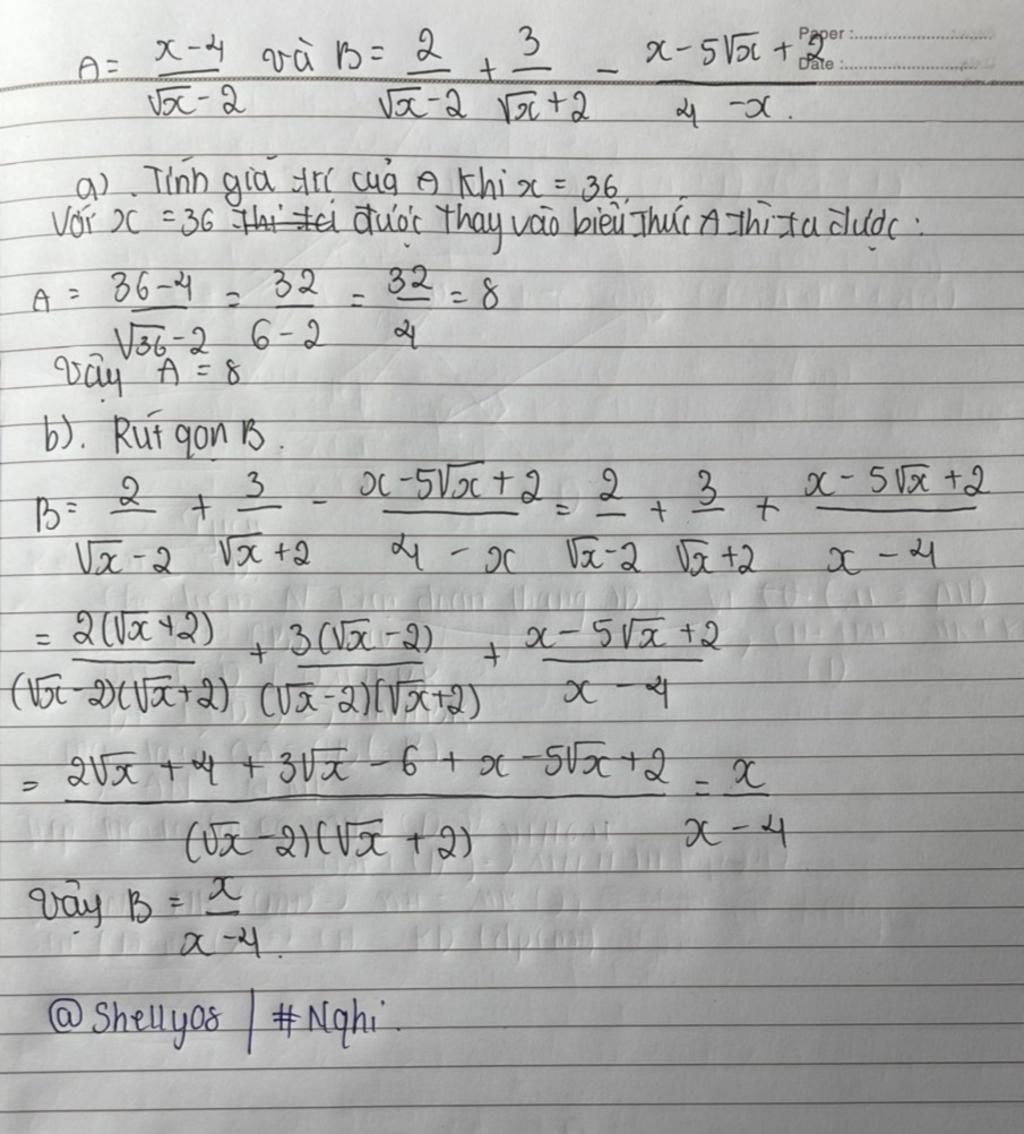 Paper :
Date :
A = (x-4)/(√x - 2) và B = 2/(√x - 2) + 3/(√x + 2) - (x - 5√x + 2)/(4 - x).
a). Tính giá trị của A khi x = 36
Với x = 36 thì ta được thay vào biểu thức A thì ta được :
A = (36-4)/(√36 - 2) = 32/(6 - 2) = 32/4 = 8
Vậy A = 8
b). Rút gọn B.
B = 2/(√x - 2) + 3/(√x + 2) - (x - 5√x + 2)/(4 - x) = 2/(√x - 2) + 3/(√x + 2) + (x - 5√x + 2)/(x - 4)
= 2(√x + 2)/((√x - 2)(√x + 2)) + 3(√x - 2)/((√x - 2)(√x + 2)) + (x - 5√x + 2)/(x - 4)
= (2√x + 4 + 3√x - 6 + x - 5√x + 2)/((√x - 2)(√x + 2)) = x/(x - 4)
Vậy B = x/(x - 4).
@Shelly08 | #Nghi.